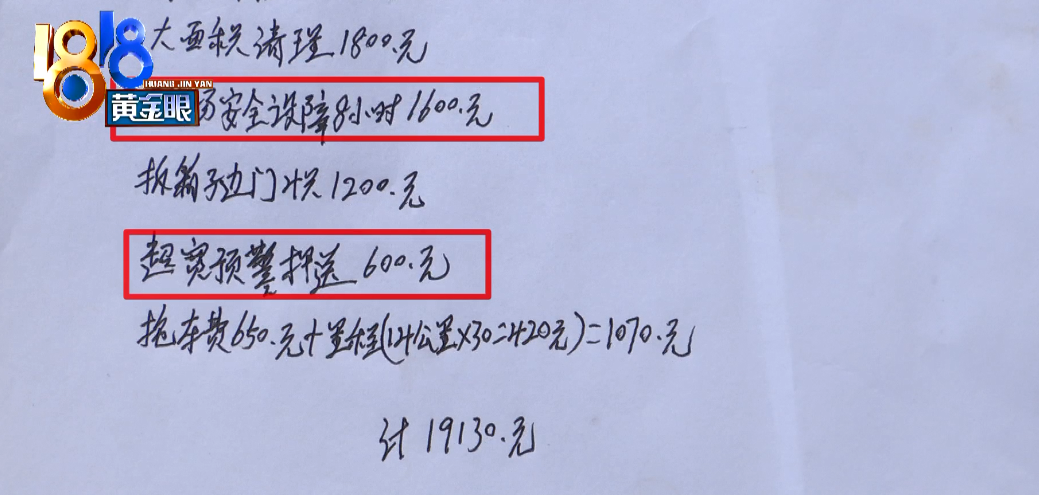 1818
HUANG JIN YAN
黄金眼
大面积清理1800.元
安全设障8小时1600.元
拆箱子边门铁1200.元
超宽预警押送 600.元
拖车费650.元+里程(14公里×30=420元)=1070.元
计 19130.元